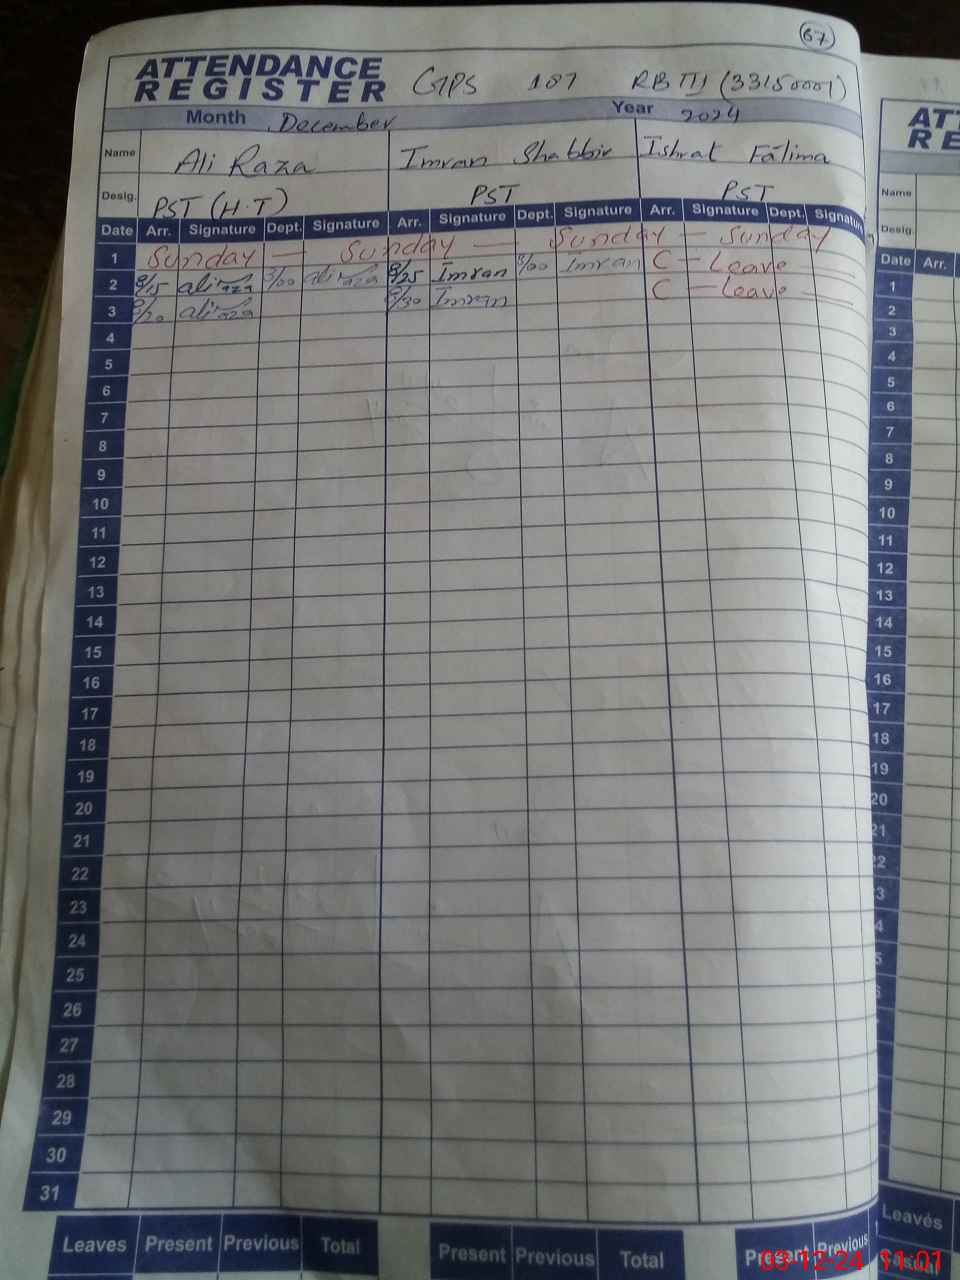 67
ATTENDANCE
REGISTER GPS 187 RB III (33150001)
Month December Year 2024
Name Ali Raza Imran Shabbir Ishrat Fatima
Desig. PST (H.T) PST PST
Date Arr. Signature Dept. Signature Arr. Signature Dept. Signature Arr. Signature Dept. Signature
1 Sunday — Sunday — Sunday — Sunday
2 8/15 ali raza 3/00 ali raza 8/25 Imran 3/00 Imran C — Leave —
3 8/20 ali raza 8/30 Imran C — Leave —
4
5
6
7
8
9
10
11
12
13
14
15
16
17
18
19
20
21
22
23
24
25
26
27
28
29
30
31
Leaves Present Previous Total Present Previous Total Present Previous
Name
Desig.
Date Arr.
1
2
3
4
5
6
7
8
9
10
11
12
13
14
15
16
17
18
19
20
Leaves
03-12-24 11:01